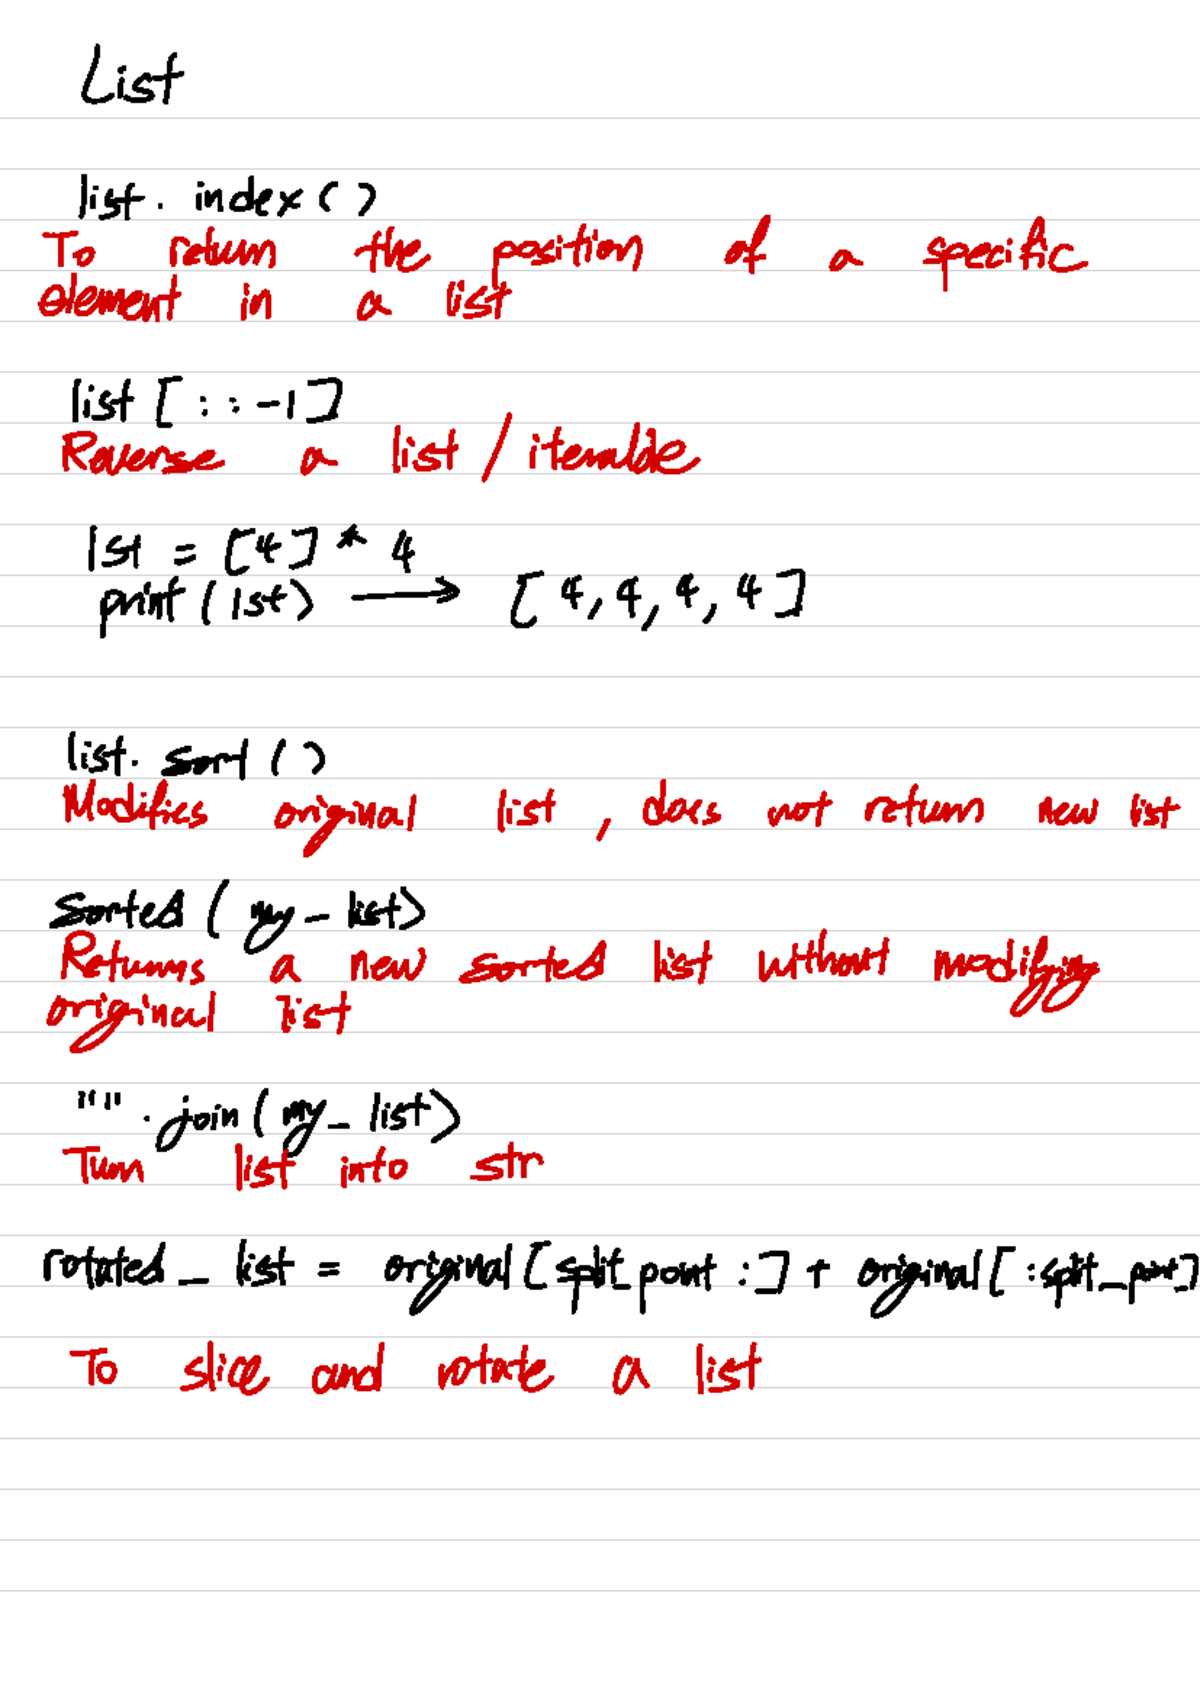 List
list. index ( )
To return the position of a specific
element in a list
list [ : : -1 ]
Reverse a list / iterable
lst = [4] * 4
print (lst) → [ 4, 4, 4, 4 ]
list. sort ( )
Modifies original list , does not return new list
Sorted ( my_list)
Returns a new sorted list without modifying
original list
"" . join ( my_list)
Turn list into str
rotated_list = original [split_point :] + original [ :split_point]
To slice and rotate a list